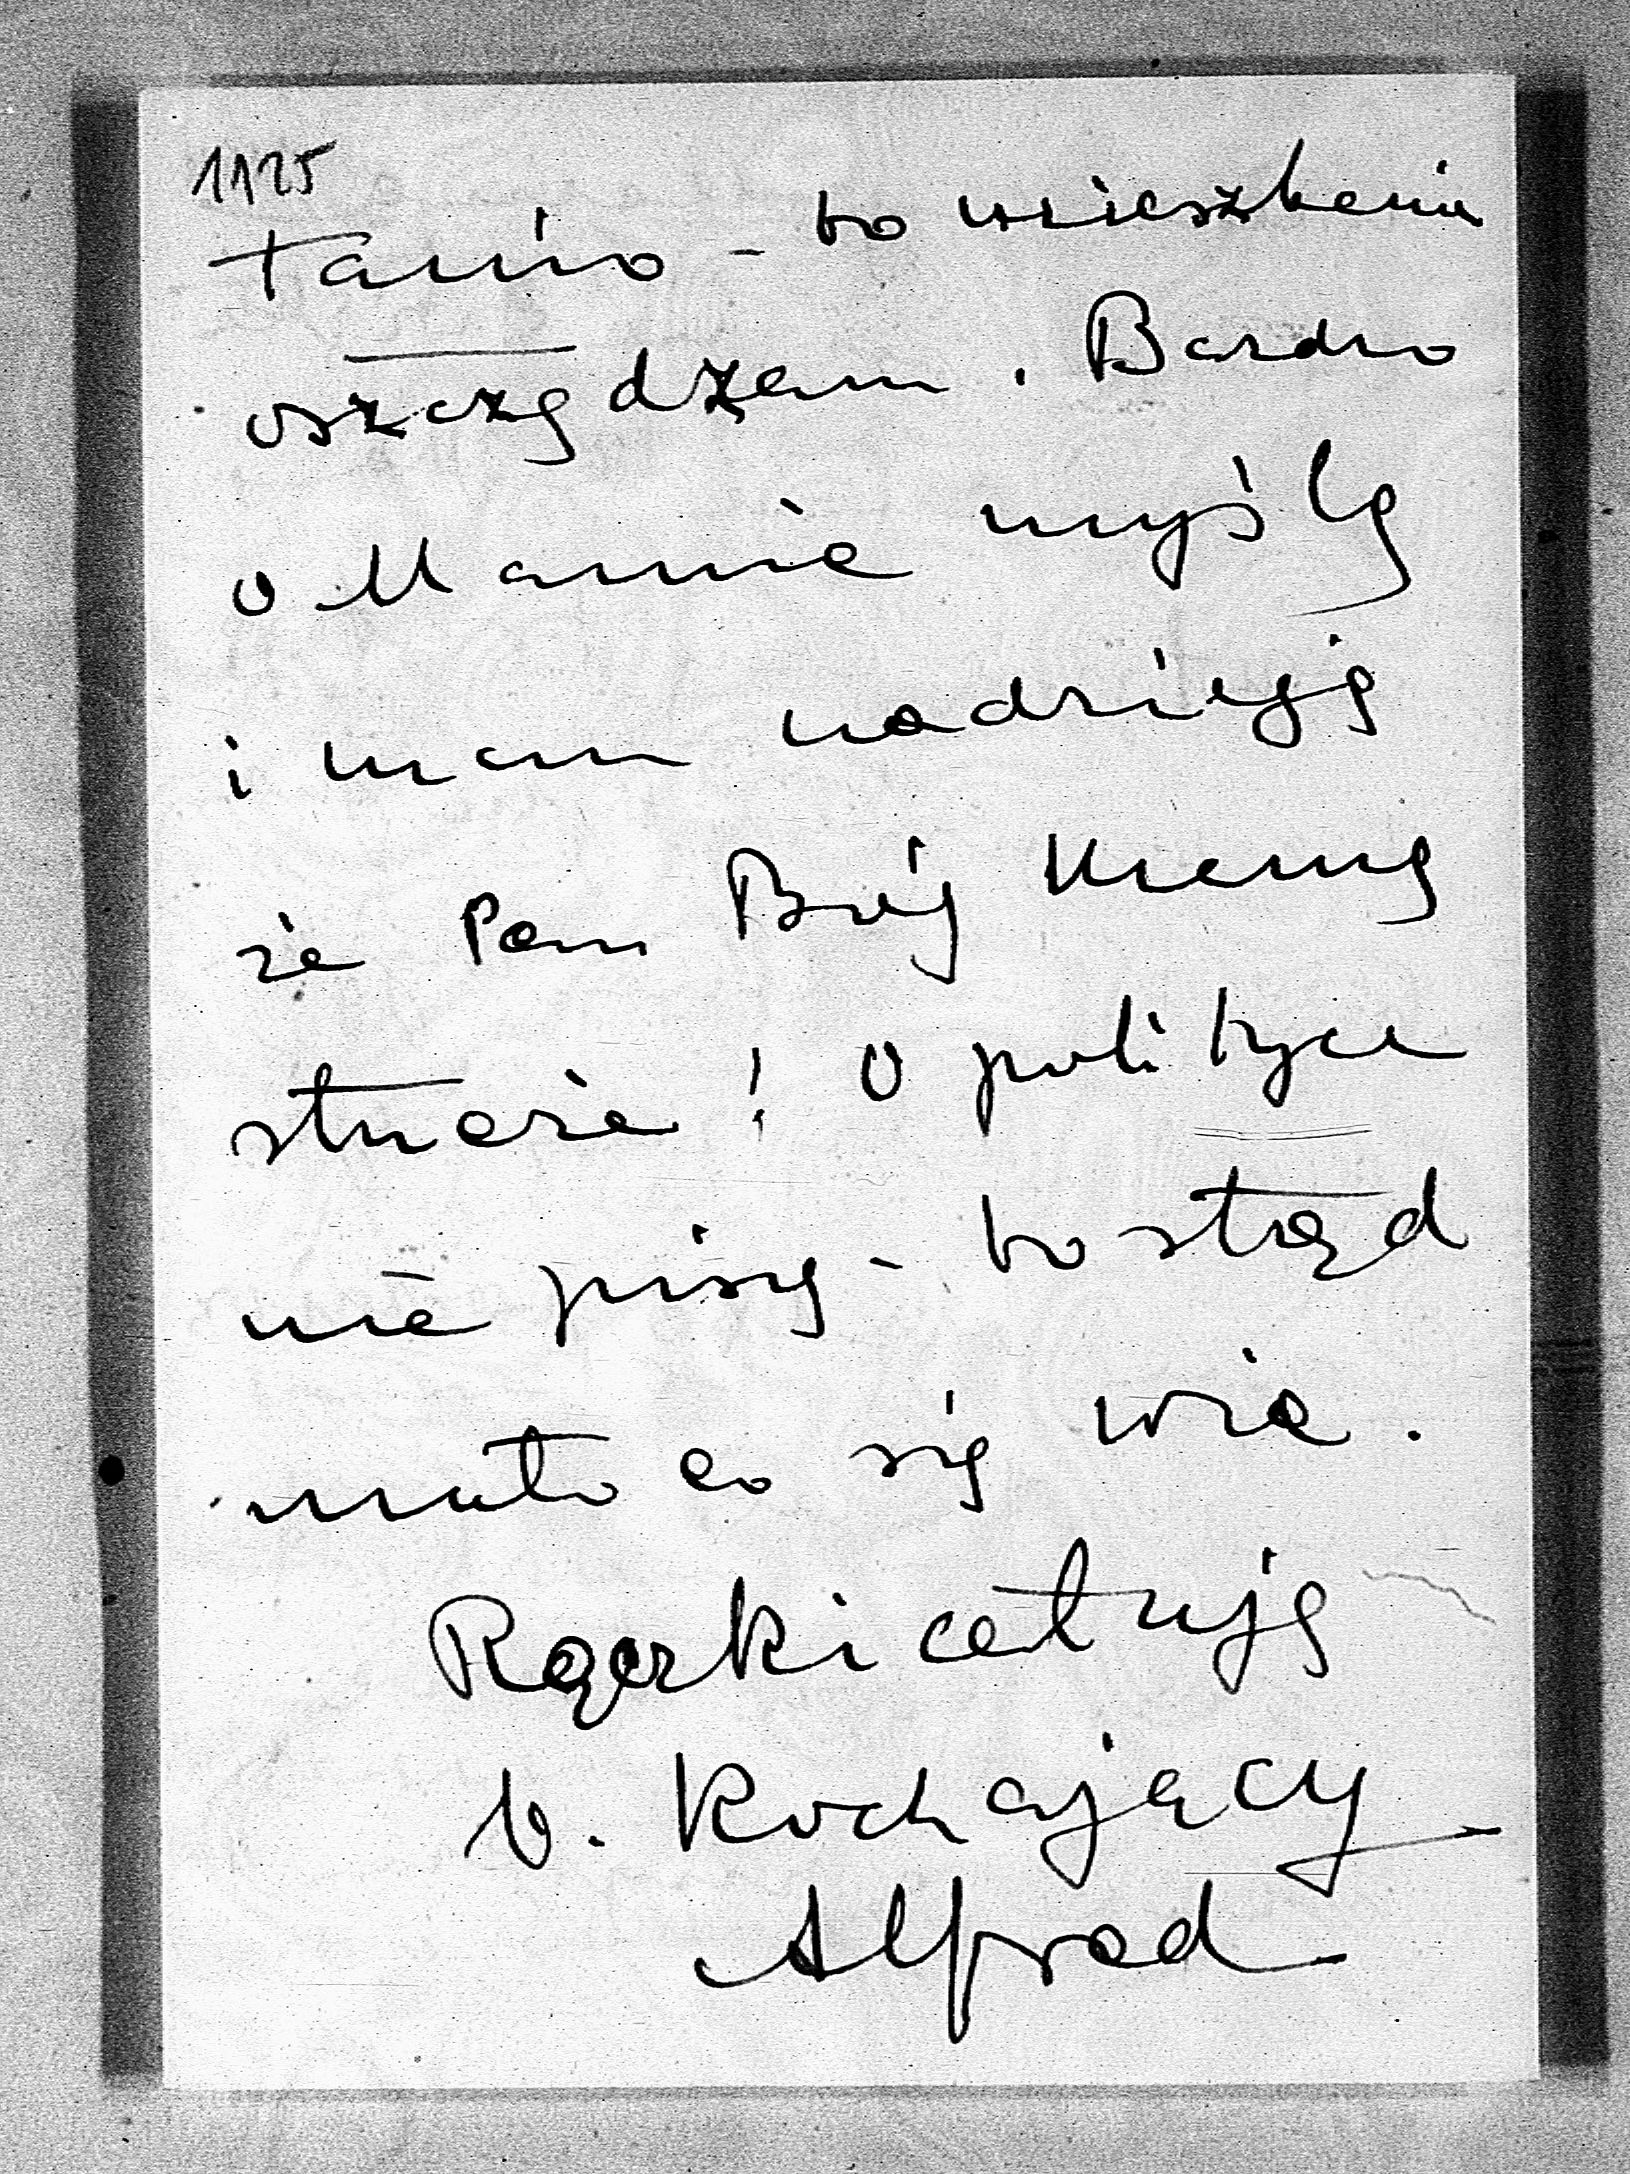 1125
Tanio - to mieszkanie
oszczędzam. Bardzo
o Mamie myślę
i mam nadzieję
że Pan Bóg Mamę
strzeże! O polityce
nie piszę - bo stąd
mało co się wie.
Rączki całuję
b. Kochający
Alfred